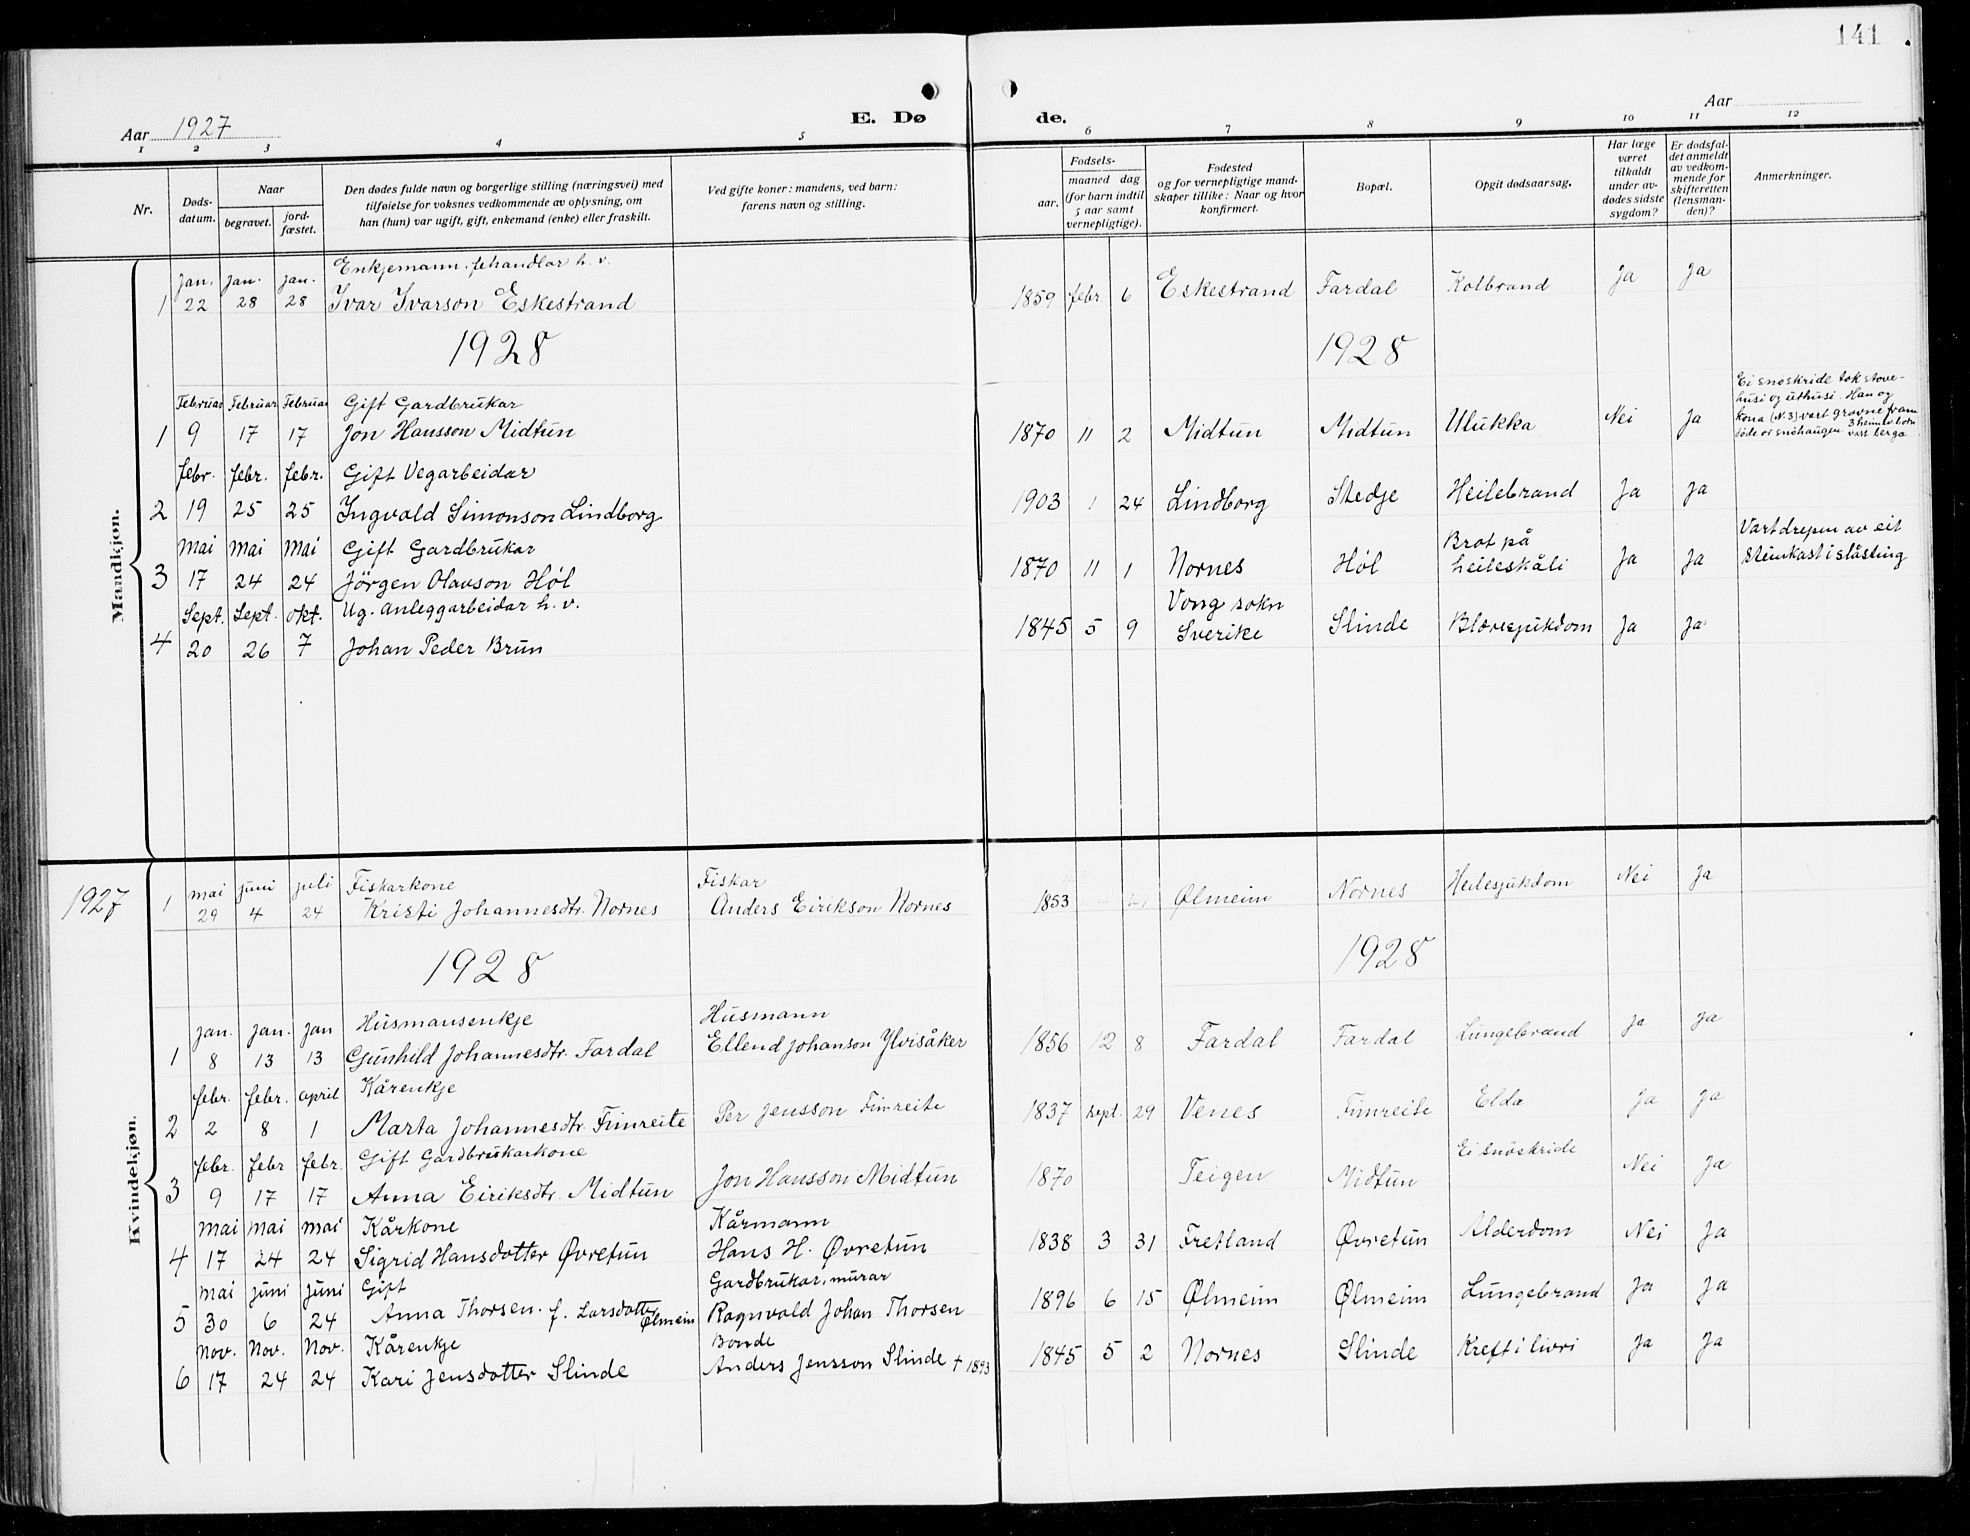 141
Aar 1927
E. Døde.
Aar
1 2 3 4 5 6 7 8 9 10 11 12
Nr.
Døds-
datum.
Naar
begravet.
jord-
fæstet.
Den dødes fulde navn og borgerlige stilling (næringsvei) med
tilføielse for voksnes vedkommende av oplysning, om
han (hun) var ugift, gift, enkemand (enke) eller fraskilt.
Ved gifte koner: mandens, ved barn:
farens navn og stilling.
Fødsels-
aar.
maaned dag
(for barn indtil
5 aar samt
vernepligtige).
Fødested
og for vernepligtige mand-
skaper tillike: Naar og hvor
konfirmert.
Bopæl.
Opgit dødsaarsag.
Har læge
været
tilkaldt
under av-
dødes sidste
sygdom?
Er dødsfal-
det anmeldt
av vedkom-
mende for
skifteretten
(lensman-
den)?
Anmerkninger.
Mandkjøn.
Jan. Jan. Jan. Enkjemann, fehandlar h. v.
1 22 28 28 Ivar Ivarson Eskestrand 1859 febr 6 Eskestrand Fardal Kolbrand Ja Ja
1928 1928
Februar Februar Februar Gift Gardbrukar
1 9 17 17 Jon Hansson Midtun 1870 11 2 Midtun Midtun Ulukka Nei Ja
Ei snøskride tok stove-
husi og uthusi. Han og
kona (N. 3) vart gravne fram
døde or snøhaugen. 3 heimev. born
vart berga
febr. febr. febr. Gift Vegarbeidar
2 19 25 25 Ingvald Simonson Lindborg 1903 1 24 Lindborg Stedje Heilebrand Ja Ja
Mai Mai Mai Gift Gardbrukar
3 17 24 24 Jörgen Olavson Høl 1870 11 1 Nornes Høl Brot på heileskåli Ja Ja
Vart drepen av eit
steinkast i slåsting
Sept. Sept. Okt. Ug. anleggarbeidar h. v.
4 20 26 7 Johan Peder Brun 1845 5 9 Vong sokn Sverike Slinde Blæresjukdom Ja Ja
Kvindekjøn.
1927
mai juni juli Fiskarkone Fiskar
1 29 4 24 Kristi Johannesdtr. Nornes Anders Eirikson Nornes 1853 Ølmeim Nornes Heilesjukdom Nei Ja
1928 1928
jan. jan. jan Husmansenkje Husmann
1 8 13 13 Gunhild Johannesdtr. Fardal Ellend Johanson Ylvisåker 1856 12 8 Fardal Fardal Lungebrand Ja Ja
febr. febr. april Kårenkje
2 2 8 1 Marta Johannesdtr. Fimreite Per Jensson Fimreite 1837 sept. 29 Venes Fimreite Elde Ja Ja
febr. febr febr. Gift Gardbrukarkone
3 9 17 17 Anna Eiriksdtr. Midtun Jon Hansson Midtun 1870 Teigen Midtun Ei snøskride Nei Ja
mai mai mai Kårkone Kårmann
4 17 24 24 Sigrid Hansdotter Øvretun Hans H. Øvretun 1838 3 31 Fretland Øvretun Alderdom Nei Ja
mai juni juni Gift Gardbrukar, murar
5 30 6 24 Anna Thorsen. f. Larsdotter Ølmeim Ragnvald Johan Thorsen 1896 6 15 Ølmeim Ølmeim Lungebrand Ja Ja
Nov. Nov. Nov. Kårenkje Bonde
6 17 24 24 Kari Jensdotter Slinde Anders Jensson Slinde + 1893 1845 5 2 Nornes Slinde Kreft i livri Ja Ja